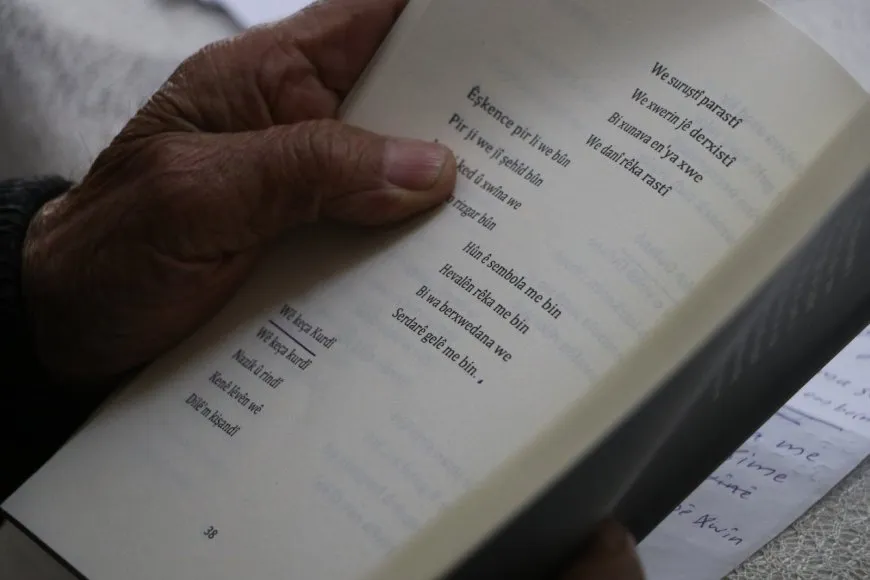 We suruştî parastî
We xwerin jê derxistî
Bi xunava en'ya xwe
We danî rêka rastî
Êşkence pir li we bûn
Pir ji we jî şehîd bûn
ked û xwîna we
rizgar bûn
Hûn ê sembola me bin
Hevalên rêka me bin
Bi wa berxwedana we
Serdarê gelê me bin.
Wê keça Kurdî
Wê keça kurdî
Nazik û rindî
Kenê lêvên wê
Dilê'm kişandî
38
me
xwîn